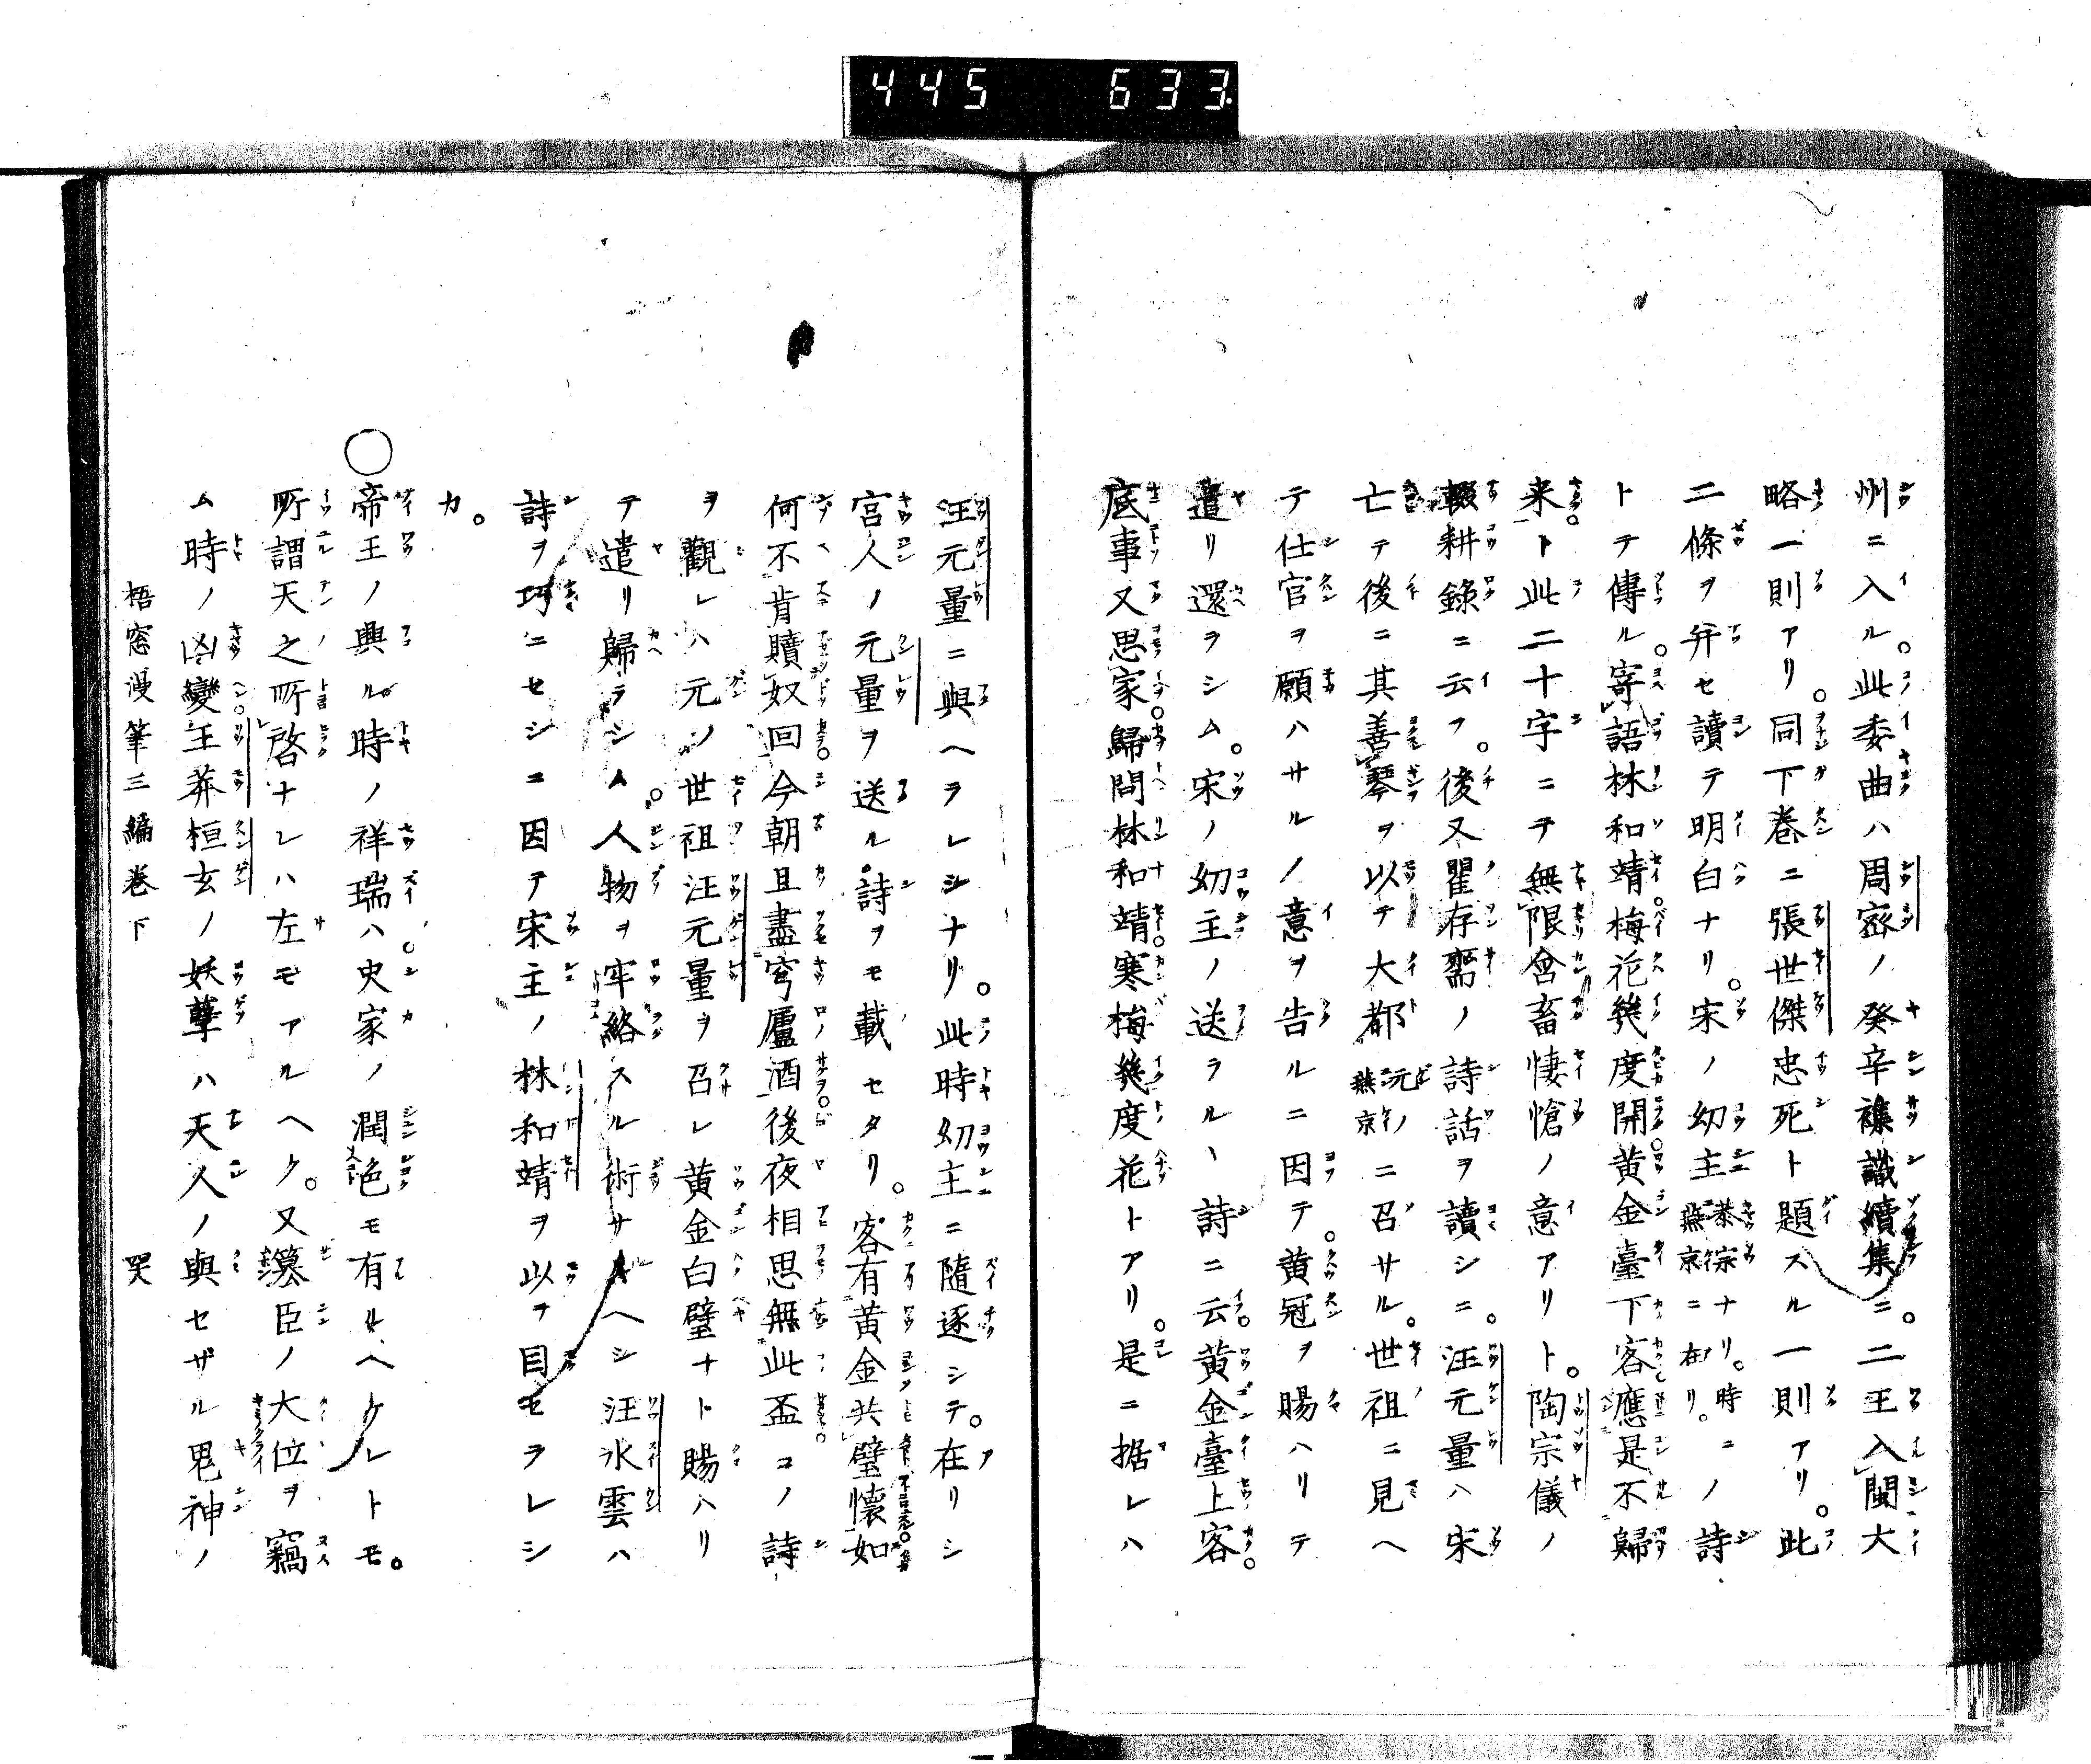 445 633
州ニ入ル。此委曲ハ周密ノ癸辛襍識續集ニ。二王入閩大
略一則アリ。同下巻ニ張世傑忠死ト題スル一則アリ。此
二條ヲ并セ讀テ明白ナリ。宋ノ幼主恭宗ナリ。時ニ燕京ニ在リ。ノ詩
トテ傳ル。寄語林和靖。梅花幾度開。黄金臺下客。應是不歸
来。ト此二十字ニテ無限含畜悽愴ノ意アリト。陶宗儀ノ
輟耕錄ニ云フ。後又瞿存齋ノ詩話ヲ讀シニ。汪元量ハ宋
亡テ後ニ其善琴ヲ以テ大都元ノ燕京ニ召サル。世祖ニ見ヘ
テ仕官ヲ願ハサルノ意ヲ告ルニ因テ。黄冠ヲ賜ハリテ
遣リ還ヲシム。宋ノ幼主ノ送ラルヽ詩ニ云。黄金臺上客。
底事又思家。歸問林和靖。寒梅幾度花トアリ。是ニ据レハ
汪元量ニ與ヘラレシナリ。此時幼主ニ隨逐シテ。在リシ
宮人ノ元量ヲ送ル詩ヲモ載セタリ。客有黄金共璧懷如
何不肯贖奴回今朝且盡穹廬酒後夜相思無此盃コノ詩
ヲ觀レハ元ノ世祖汪元量ヲ召レ黄金白璧ナト賜ハリ
テ遣リ歸ラシム。人物ヲ牢絡スル術サルヘシ汪水雲ハ
詩ヲ巧ニセシニ因テ宋主ノ林和靖ヲ以ヲ目セラレシ
カ。
○帝王ノ興ル時ノ祥瑞ハ。史家ノ潤色モ有ルヘケレトモ。
所謂天之所啓ナレハ左モアルヘク。又簒臣ノ大位ヲ竊
ム時ノ凶變。王莽桓玄ノ妖孽ハ天人ノ與セザル鬼神ノ
梧窓漫筆三編巻下